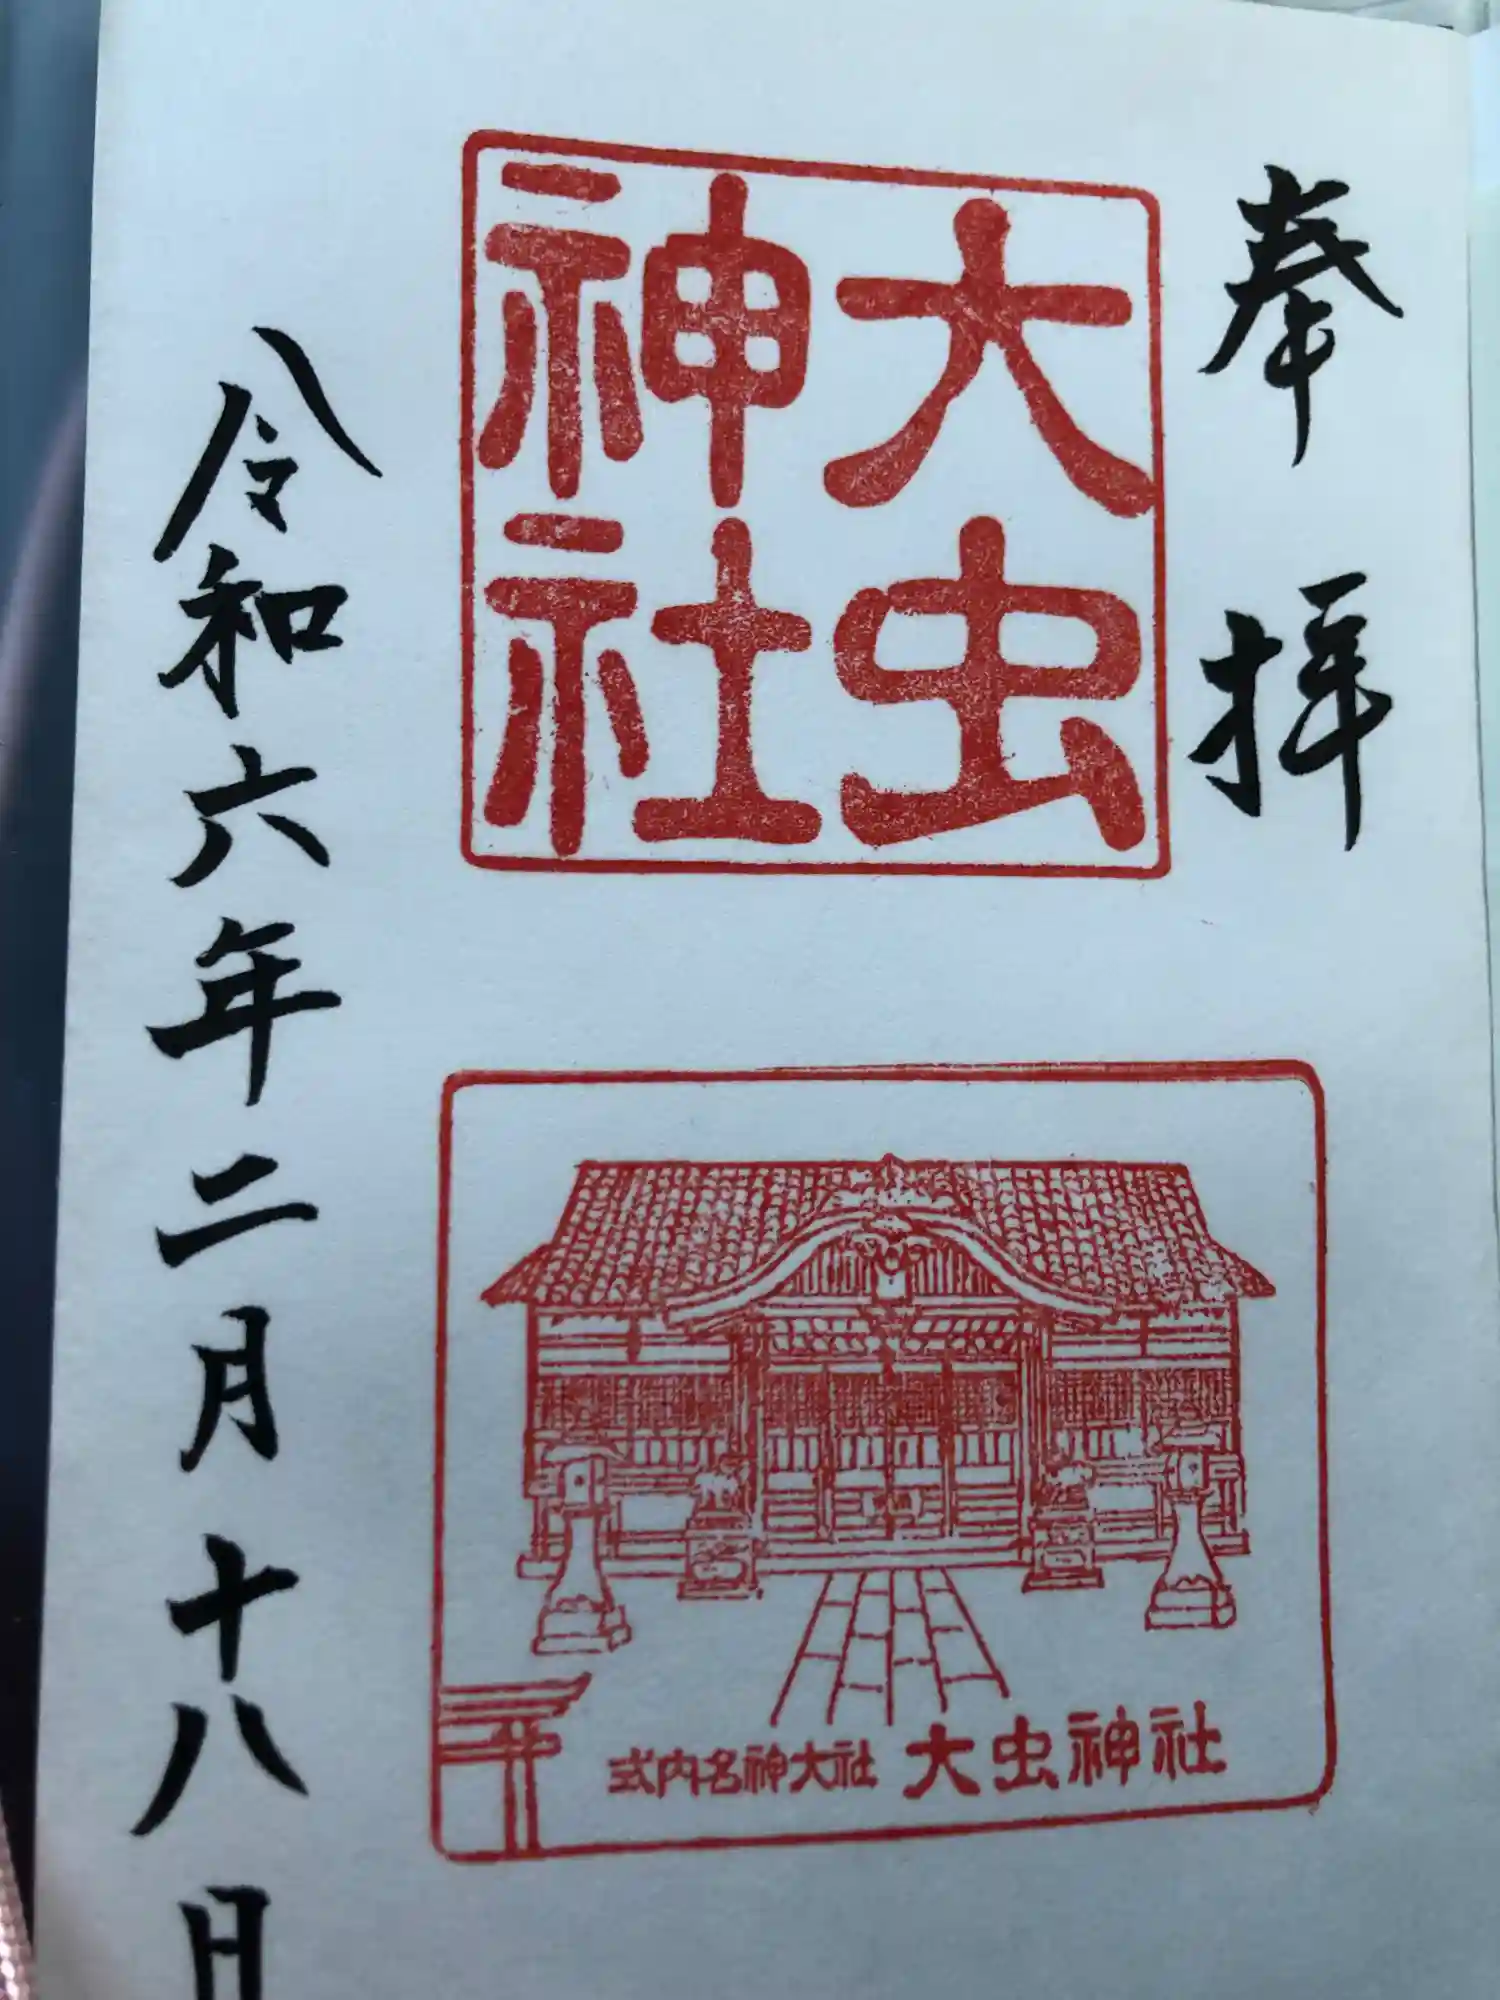 奉拝
大虫
神社
式内名神大社 大虫神社
令和六年二月十八日